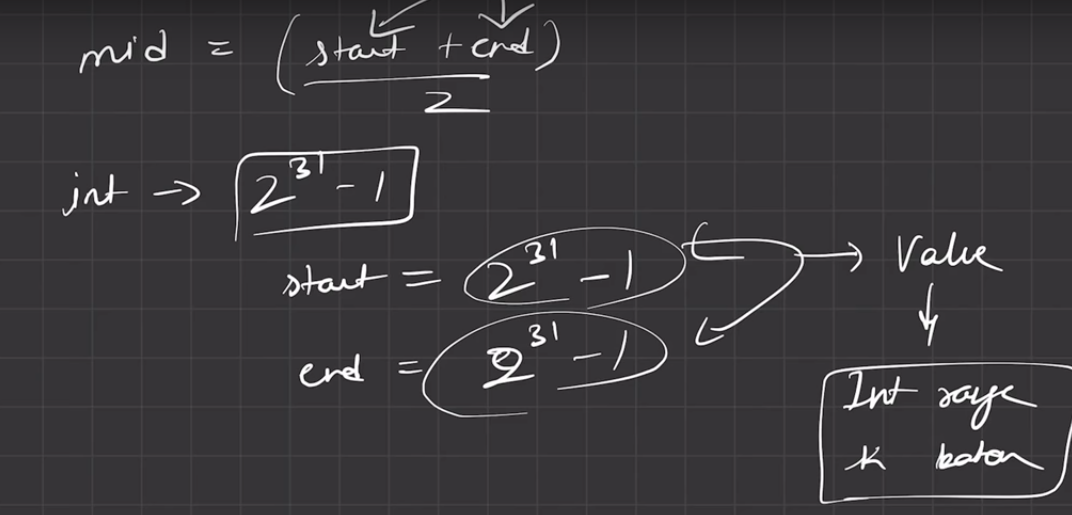 mid = (start + end)
2
int → 2³¹ - 1
start = 2³¹ - 1
end = 2³¹ - 1
→ Value
↓
Int range
k